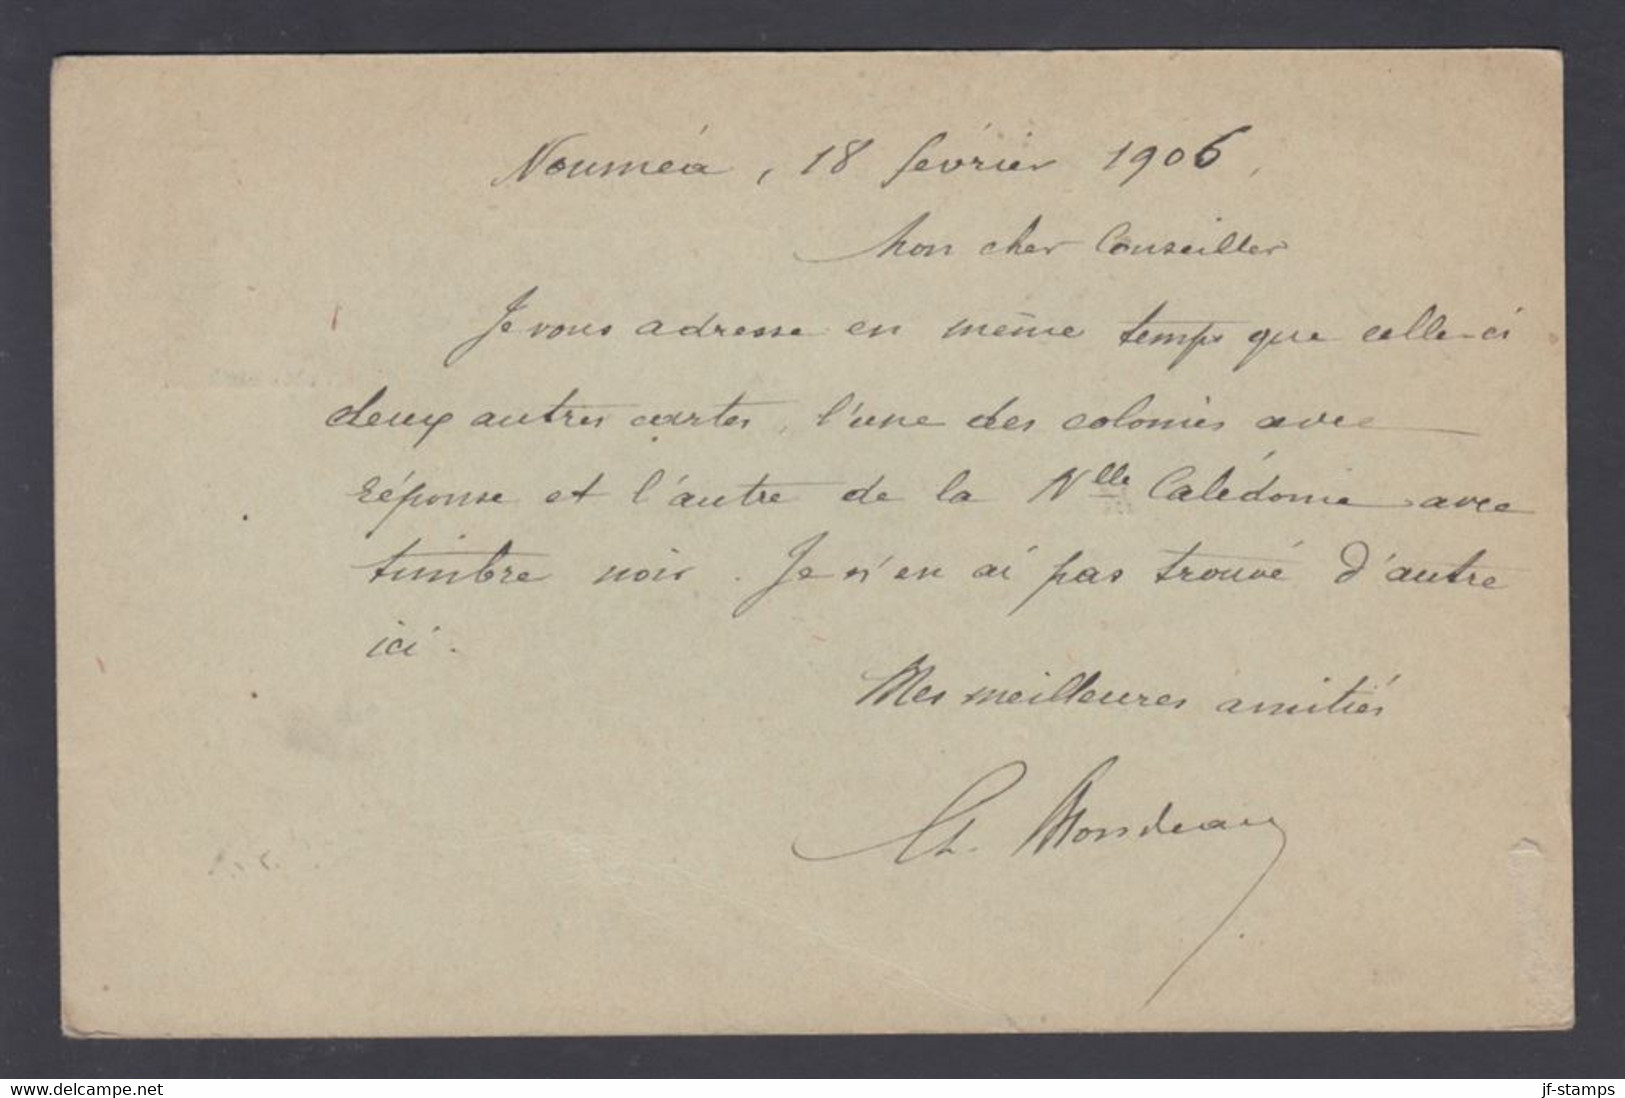 Nouméa, 18 février 1906,
Mon cher Conseiller
Je vous adresse en même temps que celle-ci
deux autres cartes, l'une des colonies avec
réponse et l'autre de la Nlle Calédonie avec
timbre noir. Je n'en ai pas trouvé d'autre
ici.
Mes meilleures amitiés
www.delcampe.net
jf-stamps